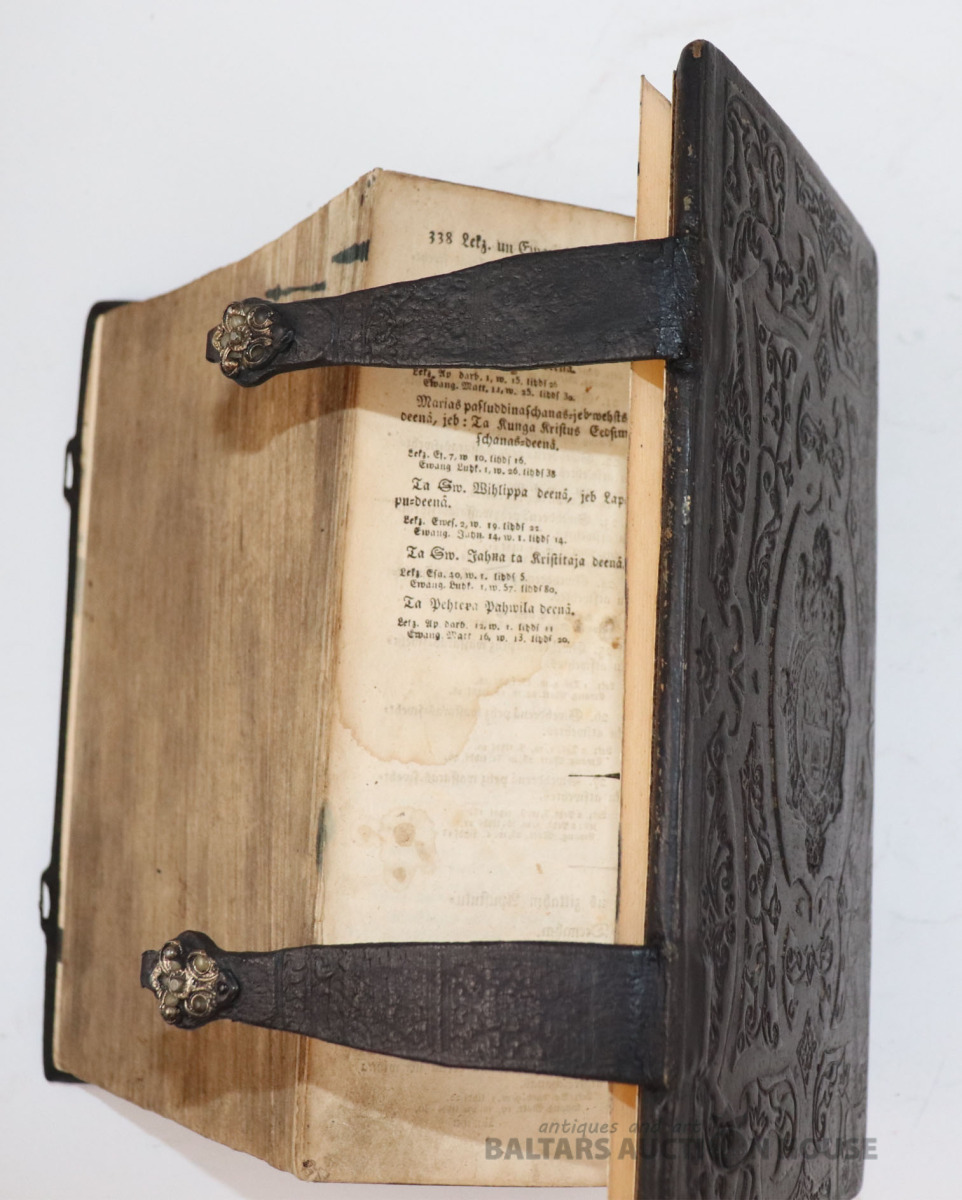 338 Lekz. un
Lekz. Ap. darb. 1, w. 15. lihds 26
Ewang. Matt. 11, w. 25. lihds 30.
Marias pasluddinaschanas- jeb wehsts
deenâ, jeb: Ta Kunga Kristus Eeds
schanas-deenâ.
Lekz. Es. 7, w 10. lihds 16.
Ewang Luhk. 1, w. 26. lihds 38
Ta Sw. Wihlippa deenâ, jeb Lap
pu-deenâ.
Lekz. Ewes. 2, w. 19. lihds 22.
Ewang. Jahn. 14, w. 1. lihds 14.
Ta Sw. Jahna ta Kristitaja deenâ.
Lekz. Esa. 40, w. 1. lihds 5.
Ewang. Luhk. 1, w. 57. lihds 80.
Ta Pehtera Pahwila deenâ.
Lekz. Ap. darb. 12, w. 1. lihds 11
Ewang. Matt 16, w. 13. lihds 20.
antiques and art
BALTARS AUCTION HOUSE